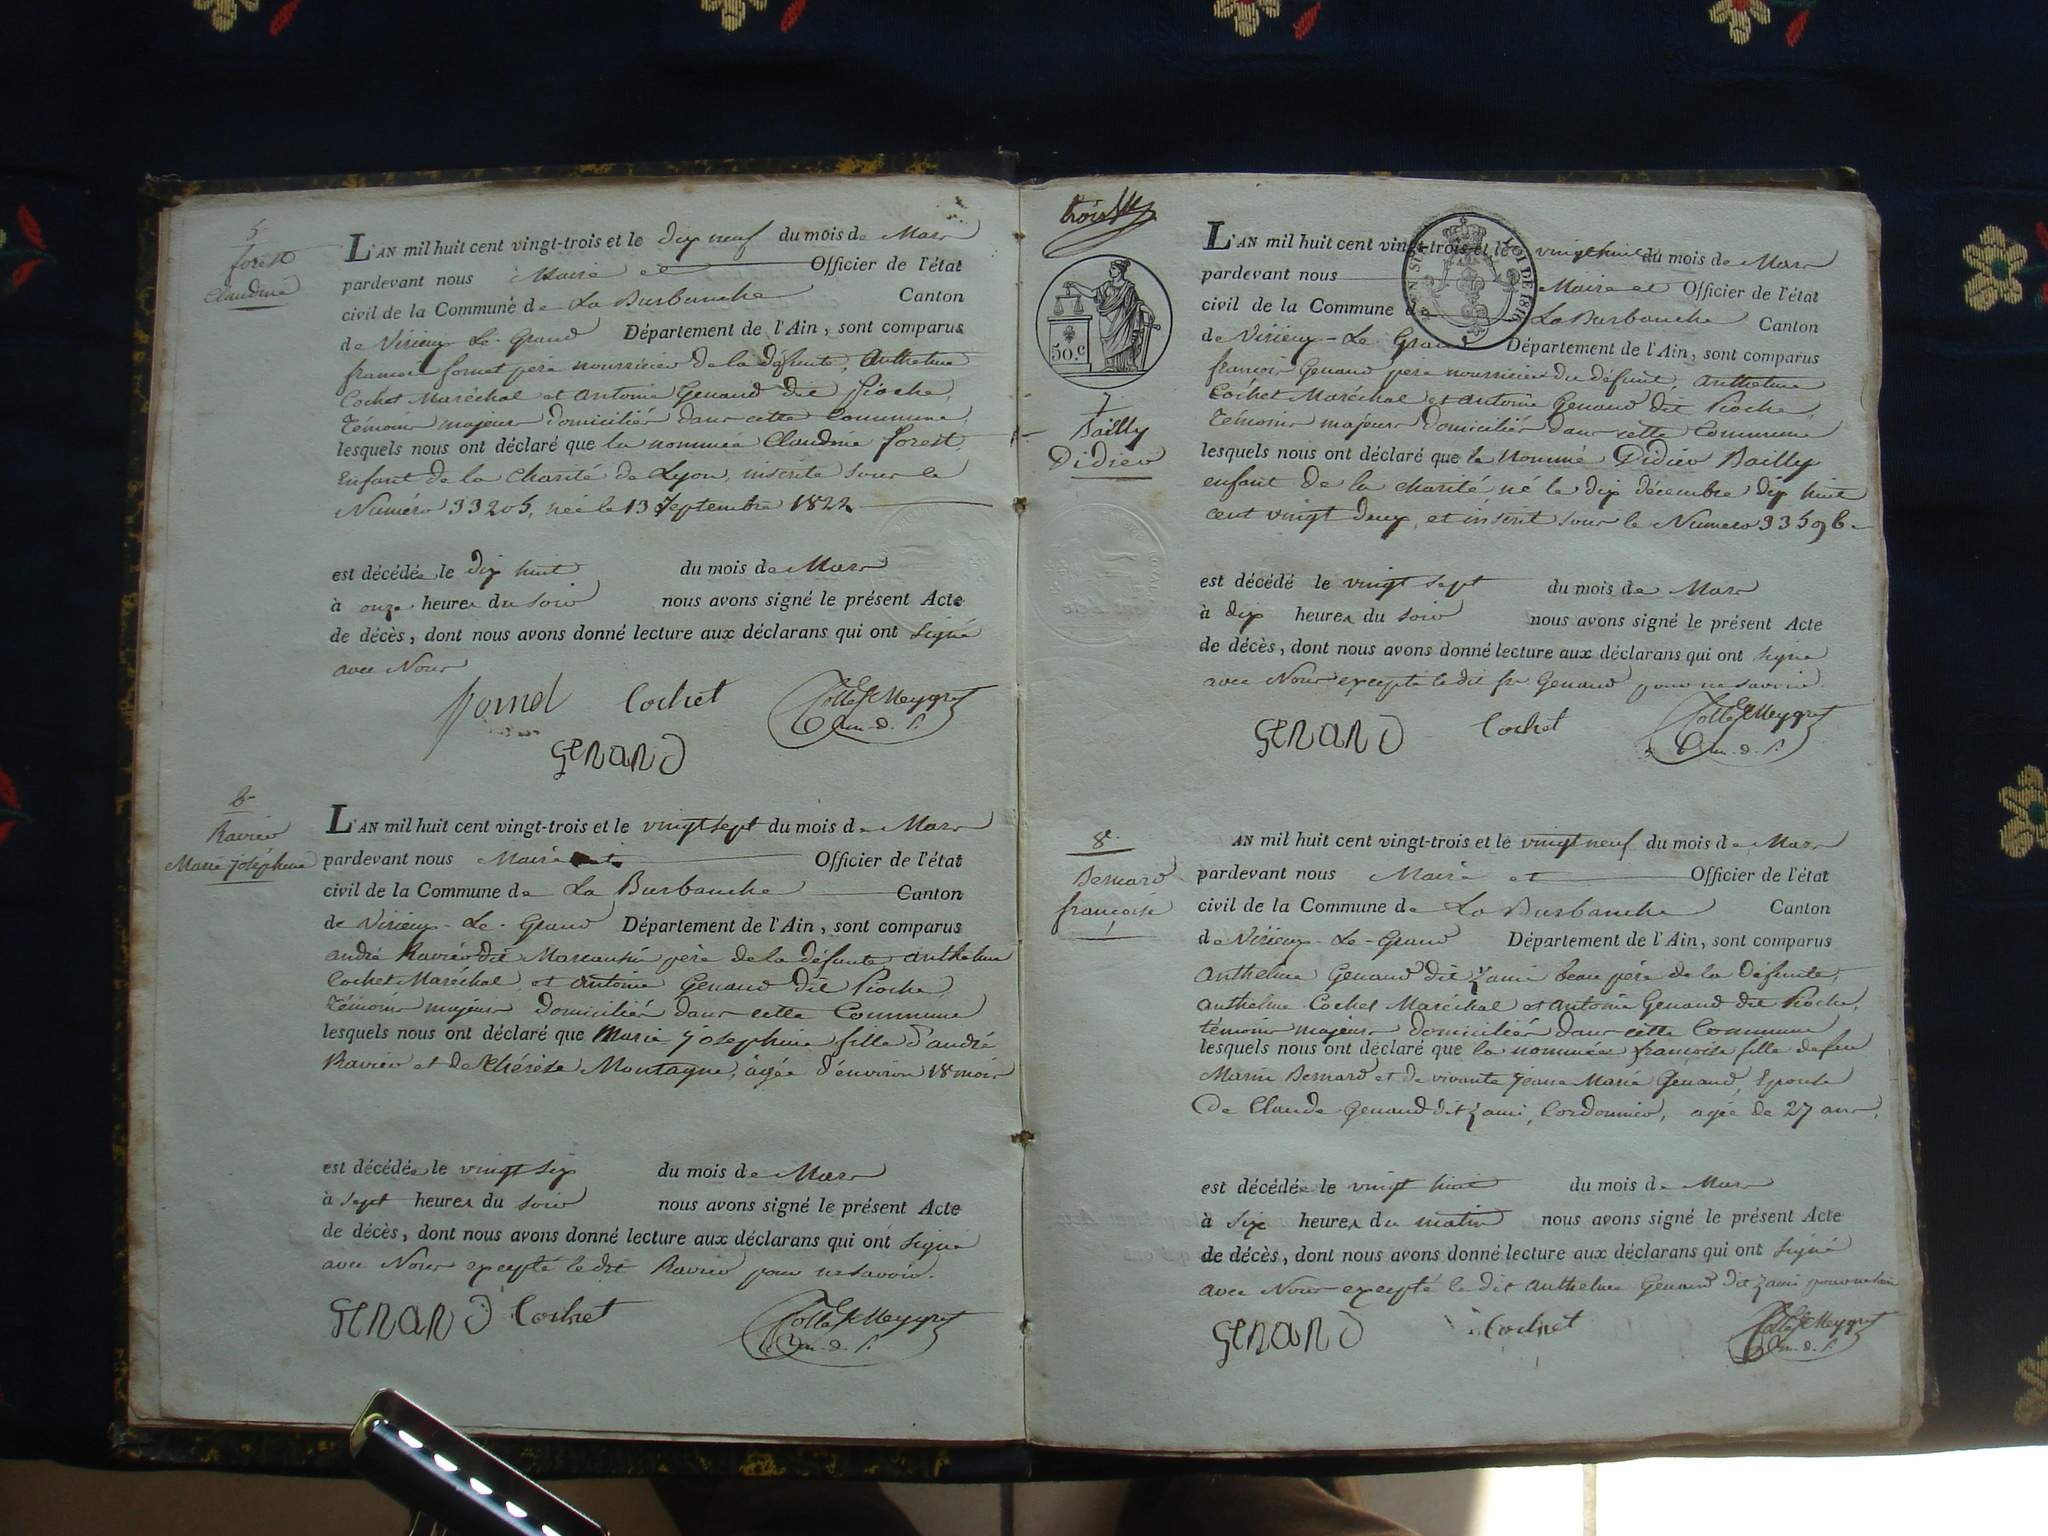 5
forest
Claudine
L'AN mil huit cent vingt-trois et le dix neuf du mois de Mars
pardevant nous Maire et Officier de l'état
civil de la Commune de La Burbanche Canton
de Virieux-Le-Grand Département de l'Ain, sont comparus
françois fornet père nourricier de la défunte, Anthelme
Cochet Maréchal et Antoine Genand dit Pioche,
Témoins majeurs domiciliés dans cette Commune,
lesquels nous ont déclaré que la nommée Claudine forest,
Enfant de la Charité de Lyon, inscrite sous le
Numéro 33205, née le 13 Septembre 1822
est décédée le dix huit du mois de Mars
à onze heures du soir nous avons signé le présent Acte
de décès, dont nous avons donné lecture aux déclarans qui ont signé
avec Nous
fornet Cochet
GENAND
6
Ravier
Marie joséphine
L'AN mil huit cent vingt-trois et le vingt sept du mois de Mars
pardevant nous Maire et Officier de l'état
civil de la Commune de La Burbanche Canton
de Virieux-Le-Grand Département de l'Ain, sont comparus
andré Ravier dit père de la défunte anthelme
Cochet Maréchal, et antoine Genand dit Pioche,
Témoins majeurs domiciliés dans cette Commune
lesquels nous ont déclaré que Marie josephine fille d'andré
Ravier et de thérèse Montagne, agée d'environ 18 mois
est décédée le vingt six du mois de Mars
à sept heures du soir nous avons signé le présent Acte
de décès, dont nous avons donné lecture aux déclarans qui ont signé
avec Nous excepté le dit Ravier pour ne savoir.
GENAND Cochet
trois
50.c
LOI DE 1816
7
Bailly
Didier
L'AN mil huit cent vingt-trois et le vingt huit du mois de Mars
pardevant nous Maire et Officier de l'état
civil de la Commune de La Burbanche Canton
de Virieux-Le-Grand Département de l'Ain, sont comparus
françois Genand père nourricier du défunt, anthelme
Cochet Maréchal et antoine Genand dit Pioche,
Témoins majeurs domiciliés dans cette Commune
lesquels nous ont déclaré que le Nommé Didier Bailly
enfant de la charité né le dix décembre dix huit
cent vingt deux, et inscrit sous le Numéro 33596
est décédé le vingt sept du mois de Mars
à dix heures du soir nous avons signé le présent Acte
de décès, dont nous avons donné lecture aux déclarans qui ont signé
avec Nous excepté le dit fr Genand pour ne savoir.
GENAND Cochet
8
Bernard
françoise
AN mil huit cent vingt-trois et le vingt neuf du mois de Mars
pardevant nous Maire et Officier de l'état
civil de la Commune de La Burbanche Canton
de Virieux-Le-Grand Département de l'Ain, sont comparus
Anthelme Genand dit beau père de la défunte,
anthelme Cochet Maréchal et antoine Genand dit Pioche,
témoins majeurs domiciliés dans cette Commune
lesquels nous ont déclaré que la nommée françoise fille de feu
Marin Bernard et de vivante jeanne Marie Génand, Epouse
de Claude Genand dit Cordonnier, agée de 27 ans,
est décédée le vingt huit du mois de Mars
à six heures du matin nous avons signé le présent Acte
de décès, dont nous avons donné lecture aux déclarans qui ont signé
avec Nous excepté le dit anthelme Genand dit
GENAND Cochet